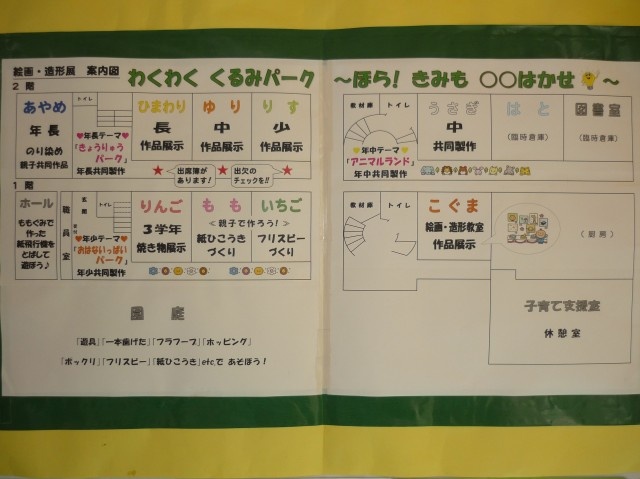 絵画・造形展 案内図 わくわく くるみパーク ～ほら！ きみも 〇〇はかせ ～
2 階
あやめ
年 長
のり染め
親子共同作品
トイレ
♥年長テーマ♥
「きょうりゅう
パーク」
年長共同製作
ひまわり
長
作品展示
ゆ り
中
作品展示
り す
少
作品展示
★ 出席簿が
あります！ ★ 出欠の
チェックを!! ★
教材庫
トイレ
♥年中テーマ♥
「アニマルランド」
年中共同製作
うさぎ
中
共同製作
は と
（臨時倉庫）
図書室
（臨時倉庫）
1 階
ホール
ももぐみで
作った
紙飛行機を
とばして
遊ぼう♪
職員室
玄関
トイレ
♥年少テーマ♥
「おはないっぱい
パーク」
年少共同製作
りんご
3学年
焼き物展示
も も
いちご
＜親子で作ろう！＞
紙ひこうき
づくり
フリスビー
づくり
教材庫
トイレ
こぐま
絵画・造形教室
作品展示
（厨房）
子育て支援室
休憩室
園 庭
「遊具」「一本歯げた」「フラフープ」「ホッピング」
「ポックリ」「フリスビー」「紙ひこうき」etc.で あそぼう！